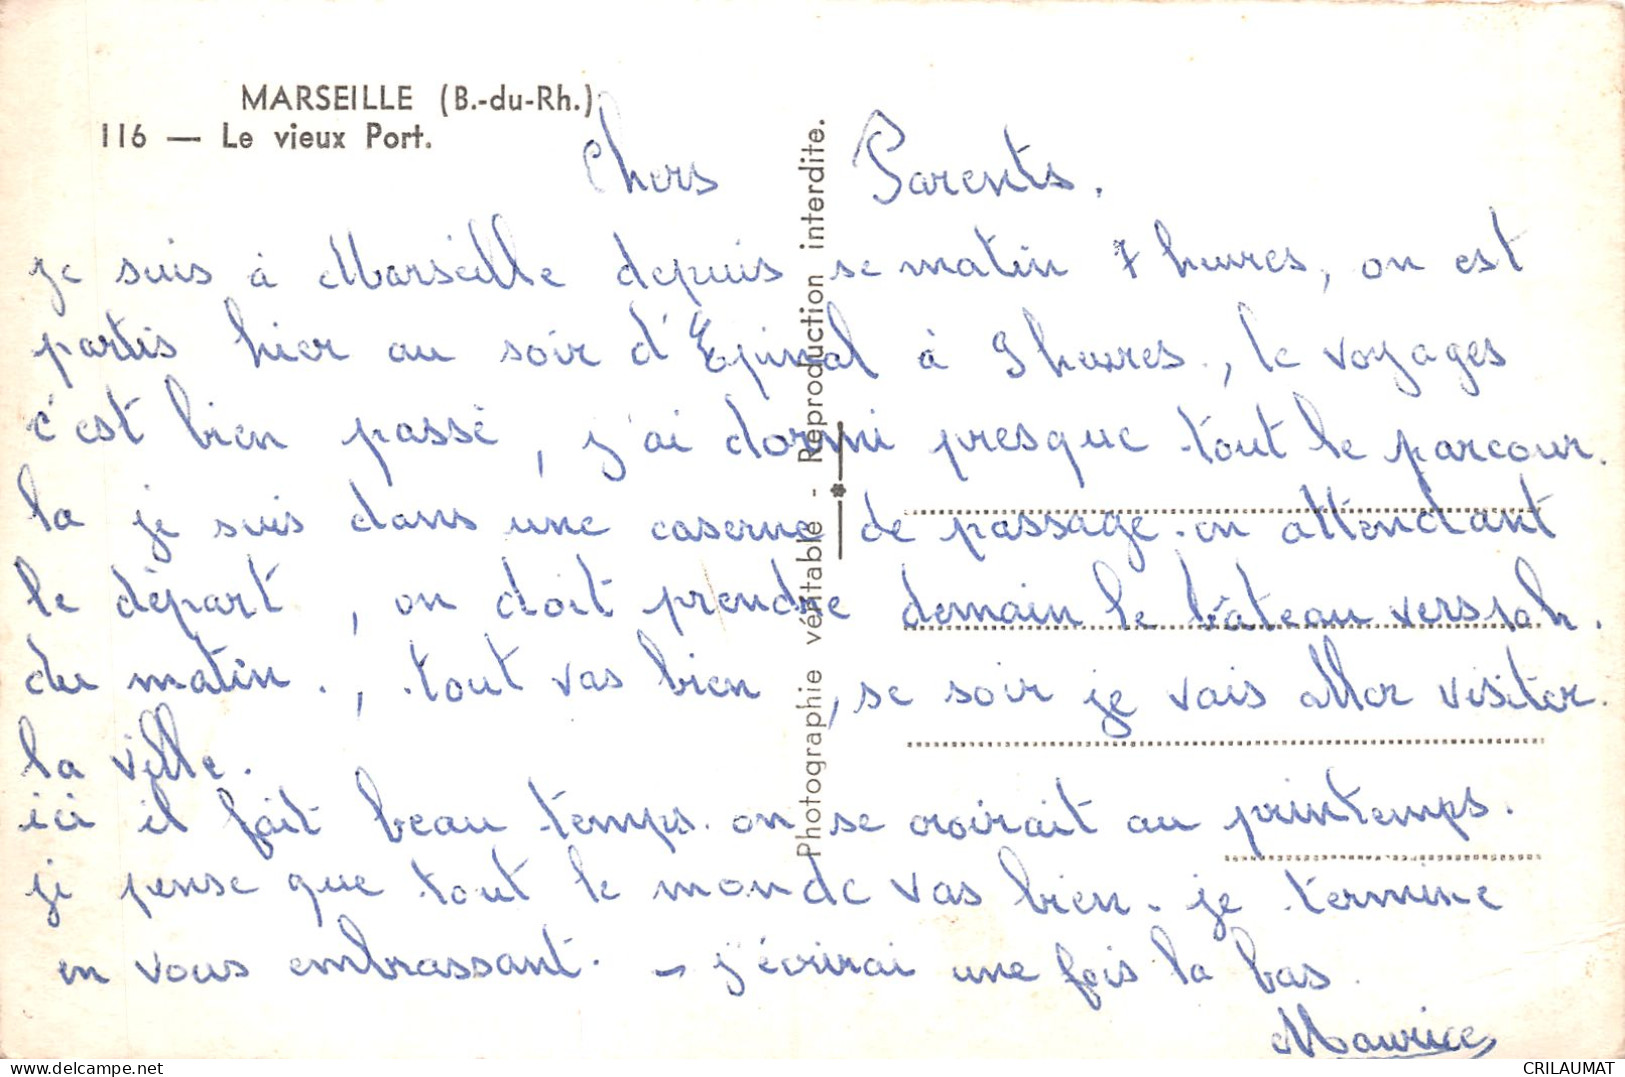 MARSEILLE (B.-du-Rh.)
116 — Le vieux Port.
Photographie véritable - Reproduction interdite.
Chers Parents.
je suis à Marseille depuis se matin 7 heures, on est
partis hier au soir d'Epinal à 9 heures., le voyages
c'est bien passé, j'ai dormi presque tout le parcour.
la je suis dans une caserne de passage. on attendant
le départ, on doit prendre demain le bâteau vers 10h.
du matin., tout vas bien, se soir je vais aller visiter.
la ville.
ici il fait beau temps. on se croirait au printemps.
je pense que tout le monde vas bien. je termine
en vous embrassant. — j'écrirai une fois la bas.
Maurice
CRILAUMAT